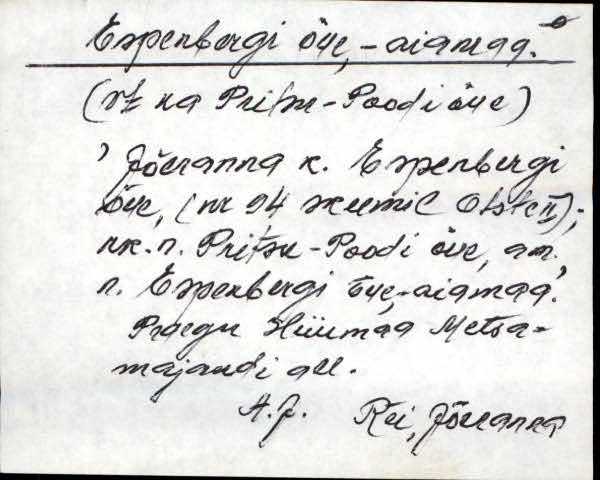 Espenbergi õue, -aiamaa.
(vt ka Pritsu-Poodi õue)
Jõeranna k. Espenbergi
õue, (nr 94 skeemil
rk. n. Pritsu-Poodi õue, am.
n. Espenbergi õue, -aiamaa.
Praegu Hiiumaa Metsa-
majandi all.
A. J. Rei, Jõeranna